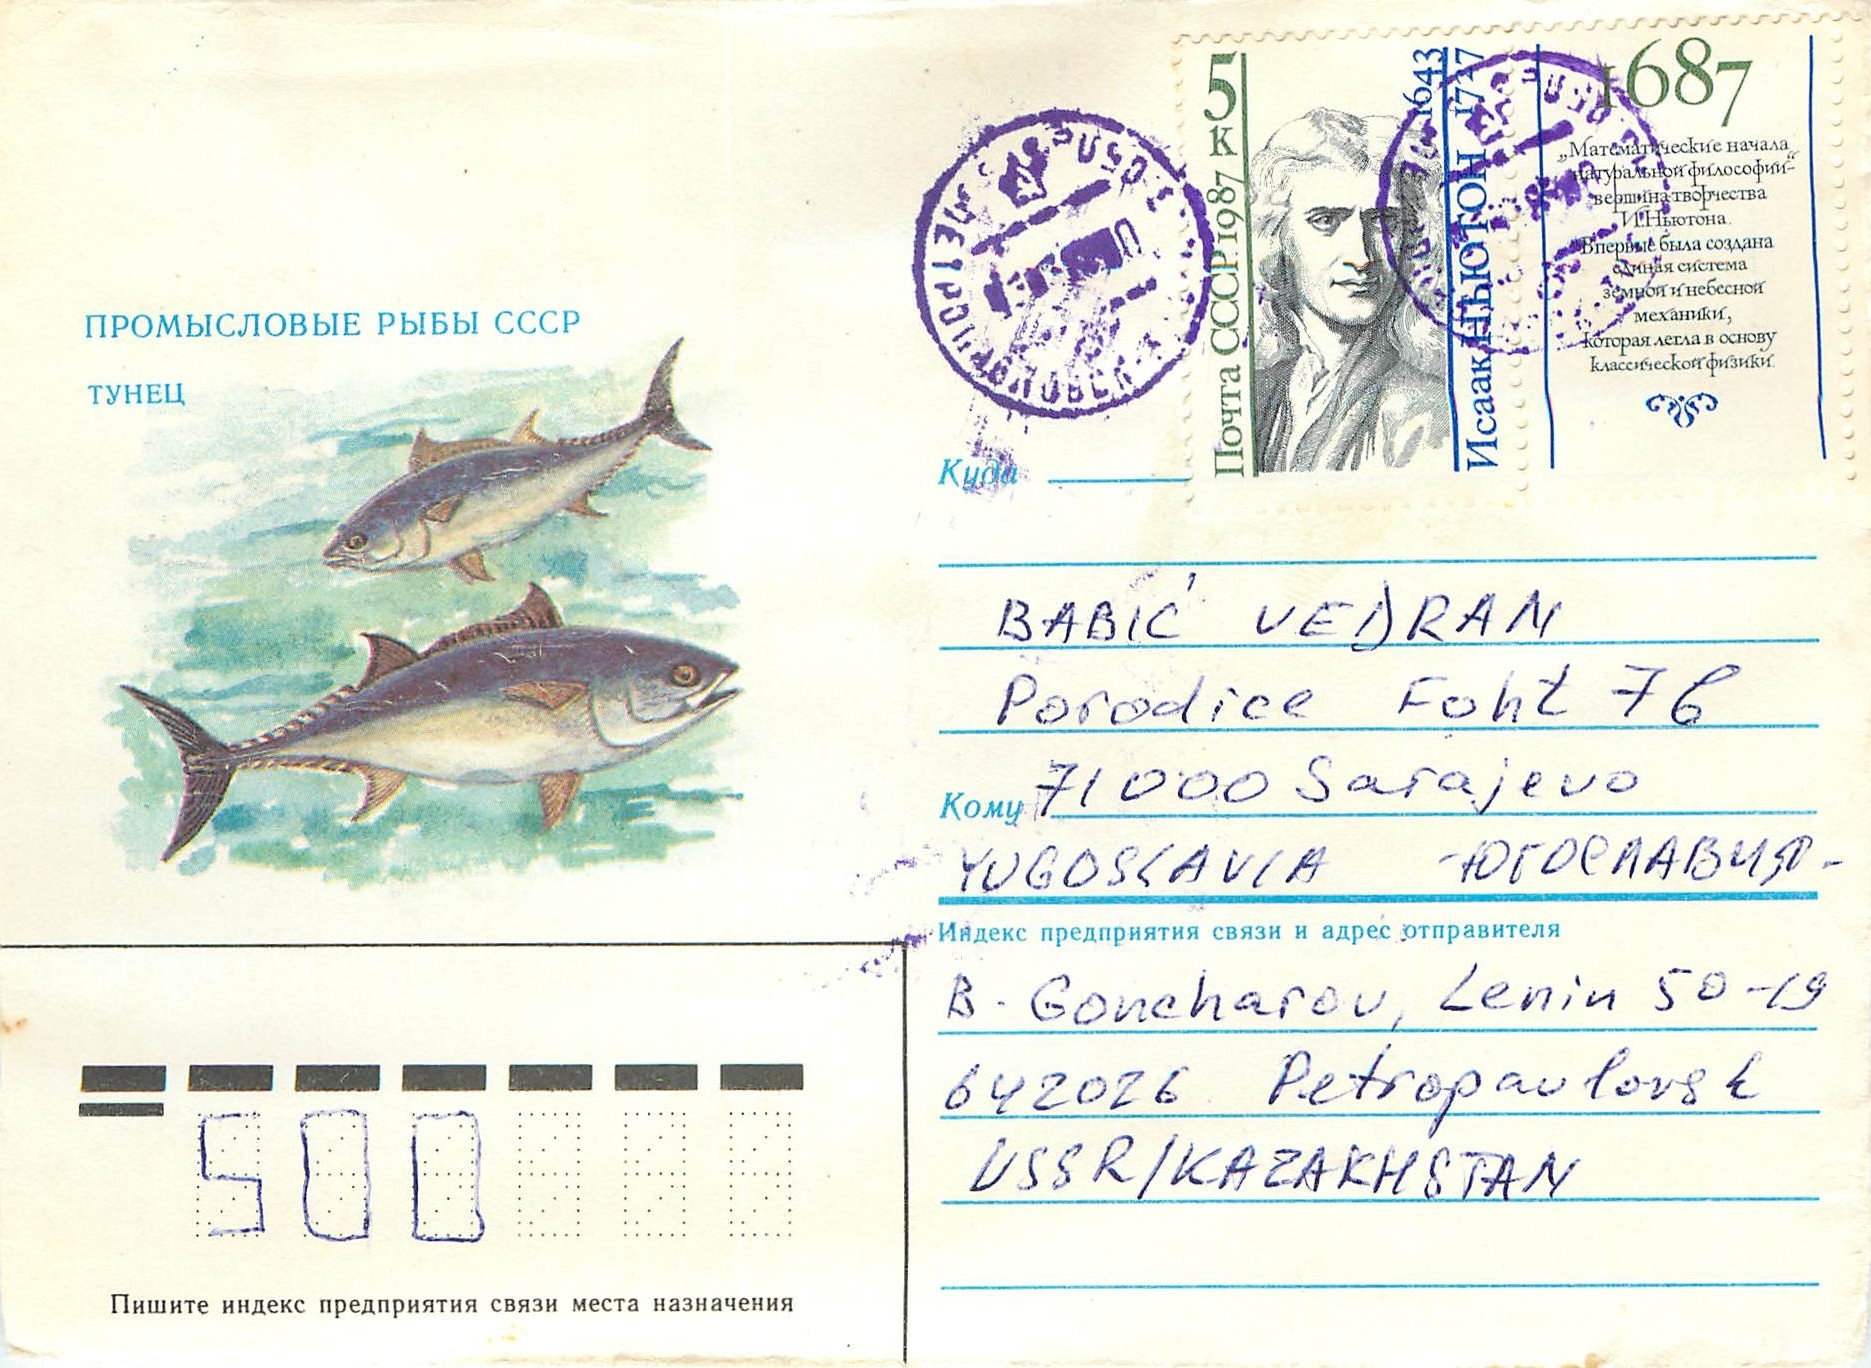 ПРОМЫСЛОВЫЕ РЫБЫ СССР
ТУНЕЦ
5
к
Почта СССР.1987
1643
1727
Исаак НЬЮТОН
1687
„Математические начала
натуральной философии“-
вершина творчества
И.Ньютона.
Впервые была создана
единая система
земной и небесной
механики,
которая легла в основу
классической физики.
Куда
BABIĆ VEDRAN
Porodice Foht 7 б
71000 Sarajevo
Кому
YUGOSLAVIA -ЮГОСЛАВИЯ-
Индекс предприятия связи и адрес отправителя
B. Goncharov, Lenin 50-19
642026 Petropavlovsk
USSR/KAZAKHSTAN
500
Пишите индекс предприятия связи места назначения